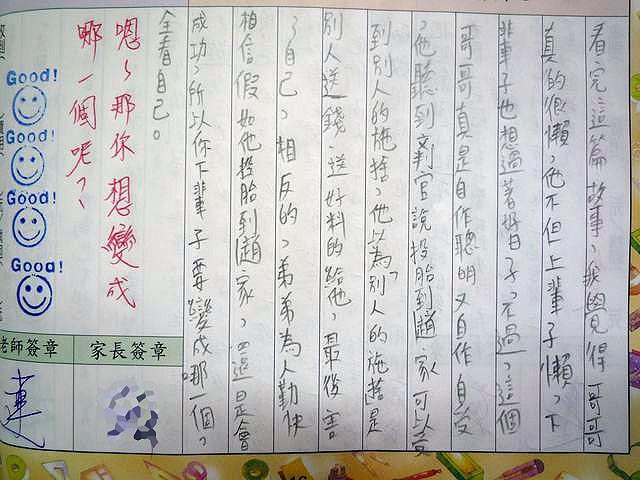 看完這篇故事，我覺得哥哥
真的很懶，他不但上輩子懶，下
輩子也想過著好日子，不過，這個
哥哥真是自作聰明又自作自受
，他聽到判官說投胎到趙家可以受
到別人的施捨，他以為別人的施捨是
別人送錢、送好料的給他，最後害
了自己，相反的，弟弟為人勤快
相信假如他投胎到趙家，還是會
成功，所以你下輩子要變成哪一個，
全看自己。
嗯～那你想變成
哪一個呢？
Good!
Good!
Good!
Good!
家長簽章
老師簽章